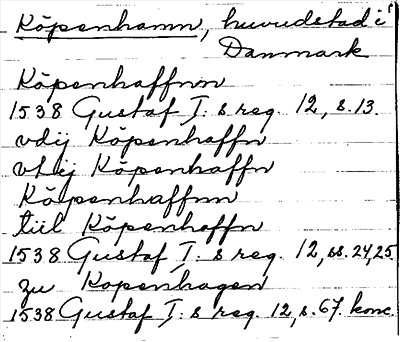 Köpenhamn, huvudstad i
Danmark
Köpenhaffnn
1538 Gustaf I:s reg. 12, s. 13.
vdij Köpenhaffn
vthj Köpenhaffn
Köpenhaffnn
tiil Köpenhaffn
1538 Gustaf I:s reg. 12, ss. 24, 25
zu Kopenhagen
1538 Gustaf I:s reg. 12, s. 67. konc.